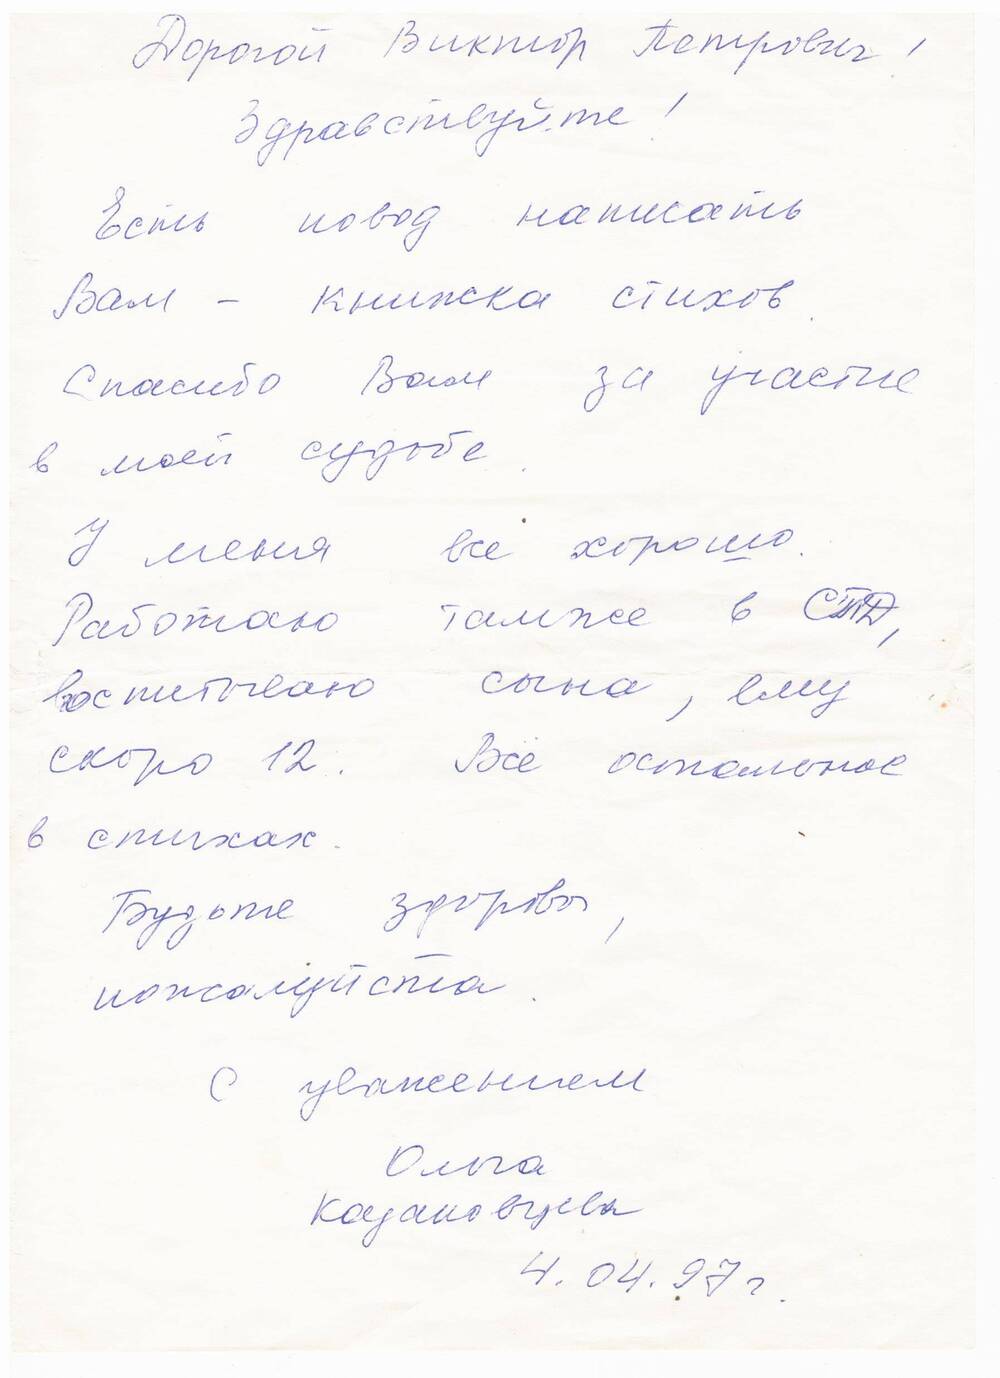 Дорогой Виктор Петрович!
Здравствуйте!
Есть повод написать
Вам – книжка стихов.
Спасибо Вам за участие
в моей судьбе.
У меня все хорошо.
Работаю также в СТД,
воспитываю сына, ему
скоро 12. Всё остальное
в стихах.
Будьте здоровы,
пожалуйста.
С уважением
Ольга
Казаковцева
4.04.97г.